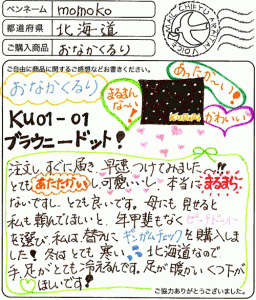 ペンネーム momoko
都道府県 北海道
ご購入商品 おなかくるり
ご自由に商品に関するご感想などお書きください。
あったか〜い!
おなかくるり
まるまんな〜い!
かわいい
KU01-01
ブラウニードット!
注文し、すぐに届き、早速つけてみました〜!!
とてもあたたかいし、可愛いし、本当にまるまら
ないですし、とても良いです。母にも見せると
私も頼んでほしいと、年甲斐もなくピーチドット
を選び、私は、替えに、ギンガムチェックを購入しま
した! 冬はとても寒い、北海道なので、
手、足がとても冷えるんです。足が暖かいくつ下が
ほしいです!
ご協力ありがとうございました。